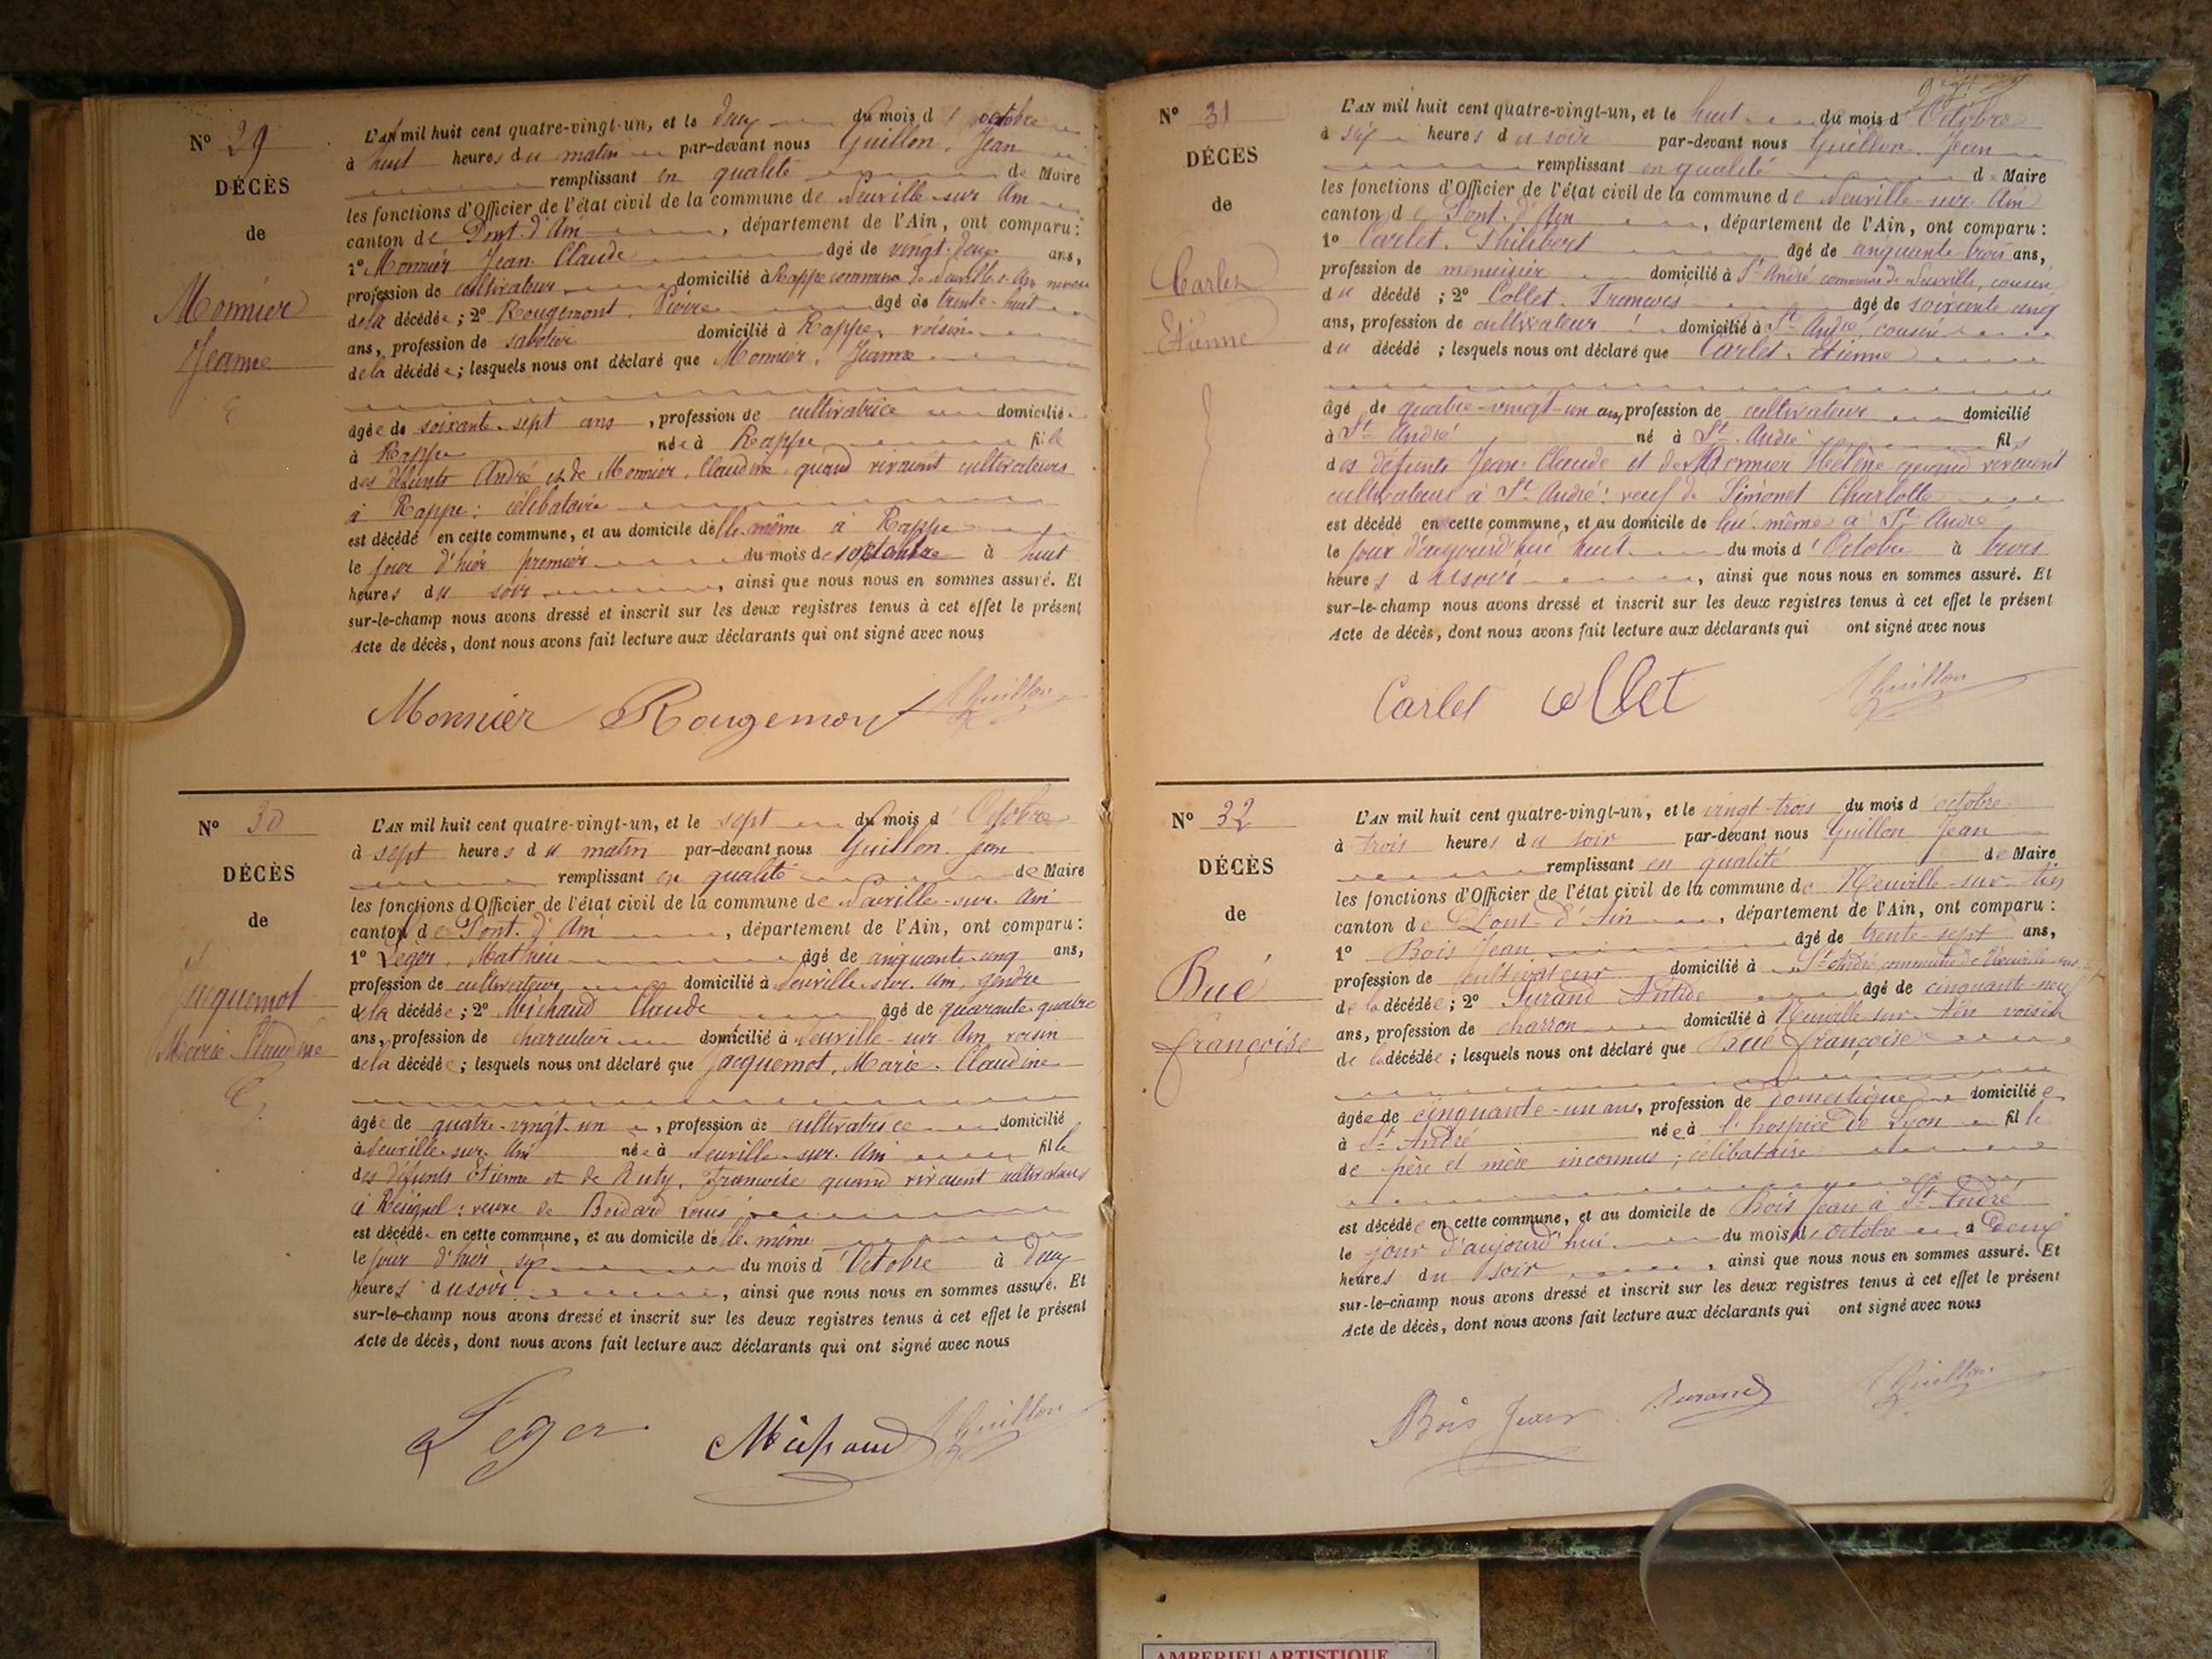 N° 29
DÉCÈS
de
Monnier
Jeanne
L'AN mil huit cent quatre-vingt-un, et le deux du mois d'octobre
à huit heures du matin par-devant nous Guillon, Jean
remplissant en qualité de Maire
les fonctions d'Officier de l'état civil de la commune de Neuville-sur-Ain
canton de Pont-d'Ain, département de l'Ain, ont comparu:
1° Monnier Jean-Claude âgé de vingt-deux ans,
profession de cultivateur domicilié à Rappe commune de Neuville s. Ain neveu
de la décédée; 2° Rougemont, Pierre âgé de trente-huit
ans, profession de sabotier domicilié à Rappe, voisin
de la décédée; lesquels nous ont déclaré que Monnier, Jeanne
âgée de soixante-sept ans, profession de cultivatrice domicilié
à Rappe née à Rappe fille
des défunts André et de Monnier, Claudine quand vivaient cultivateurs
à Rappe: célibataire
est décédé en cette commune, et au domicile d'elle-même à Rappe
le jour d'hier premier du mois de à huit
heures du soir, ainsi que nous nous en sommes assuré. Et
sur-le-champ nous avons dressé et inscrit sur les deux registres tenus à cet effet le présent
Acte de décès, dont nous avons fait lecture aux déclarants qui ont signé avec nous
Monnier Rougemont Guillon
N° 30
DÉCÈS
de
Jacquemot
Marie-Claudine
L'AN mil huit cent quatre-vingt-un, et le sept du mois d'Octobre
à sept heures du matin par-devant nous Guillon Jean
remplissant en qualité de Maire
les fonctions d'Officier de l'état civil de la commune de Neuville-sur-Ain
canton de Pont-d'Ain, département de l'Ain, ont comparu:
1° Leger, Mathieu âgé de cinquante-cinq ans,
profession de cultivateur domicilié à Neuville-sur-Ain, gendre
de la décédée; 2° Michaud Claude âgé de quarante-quatre
ans, profession de charcutier domicilié à Neuville-sur-Ain, voisin
de la décédée; lesquels nous ont déclaré que Jacquemot, Marie-Claudine
âgée de quatre-vingt-un, profession de cultivatrice domicilié
à Neuville-sur-Ain née à Neuville-sur-Ain fille
des défunts Etienne et de Ruty, Françoise quand vivaient cultivateurs
à Résignel: veuve de Bordard Louis
est décédé en cette commune, et au domicile d'elle-même
le jour d'hier six du mois d'Octobre à deux
heures du soir, ainsi que nous nous en sommes assuré. Et
sur-le-champ nous avons dressé et inscrit sur les deux registres tenus à cet effet le présent
Acte de décès, dont nous avons fait lecture aux déclarants qui ont signé avec nous
Leger Michaud Guillon
N° 31
DÉCÈS
de
Carlet
Etienne
L'AN mil huit cent quatre-vingt-un, et le huit du mois d'Octobre
à six heures du soir par-devant nous Guillon Jean
remplissant en qualité de Maire
les fonctions d'Officier de l'état civil de la commune de Neuville-sur-Ain
canton de Pont-d'Ain, département de l'Ain, ont comparu:
1° Carlet, Philibert âgé de cinquante-trois ans,
profession de menuisier domicilié à St André commune de Neuville, cousin
du décédé; 2° Collet, François âgé de soixante cinq
ans, profession de cultivateur domicilié à St André, cousin
du décédé; lesquels nous ont déclaré que Carlet, Etienne
âgé de quatre-vingt-un ans, profession de cultivateur domicilié
à St André né à St André fils
des défunts Jean-Claude et de Monnier Hélène quand vivaient
cultivateurs à St André: veuf de Simonet Charlotte
est décédé en cette commune, et au domicile de lui-même à St André
le jour d'aujourd'hui huit du mois d'Octobre à trois
heures du soir, ainsi que nous nous en sommes assuré. Et
sur-le-champ nous avons dressé et inscrit sur les deux registres tenus à cet effet le présent
Acte de décès, dont nous avons fait lecture aux déclarants qui ont signé avec nous
Carlet Collet Guillon
N° 32
DÉCÈS
de
Bué
Françoise
L'AN mil huit cent quatre-vingt-un, et le vingt-trois du mois d'octobre
à trois heures du soir par-devant nous Guillon Jean
remplissant en qualité de Maire
les fonctions d'Officier de l'état civil de la commune de Neuville-sur-Ain
canton de Pont-d'Ain, département de l'Ain, ont comparu:
1° Bois Jean âgé de trente-sept ans,
profession de cultivateur domicilié à St André commune de Neuville sur
de la décédée; 2° Durand Antide âgé de cinquante-neuf
ans, profession de charron domicilié à Neuville-sur-Ain voisin
de la décédée; lesquels nous ont déclaré que Bué Françoise
âgée de cinquante-un ans, profession de domestique domiciliée
à St André née à l'hospice de Lyon fille
de père et mère inconnus; célibataire
est décédée en cette commune, et au domicile de Bois Jean à St André
le jour d'aujourd'hui du mois d'octobre à deux
heures du soir, ainsi que nous nous en sommes assuré. Et
sur-le-champ nous avons dressé et inscrit sur les deux registres tenus à cet effet le présent
Acte de décès, dont nous avons fait lecture aux déclarants qui ont signé avec nous
Bois Jean Durand Guillon
AMBERIEU ARTISTIQUE